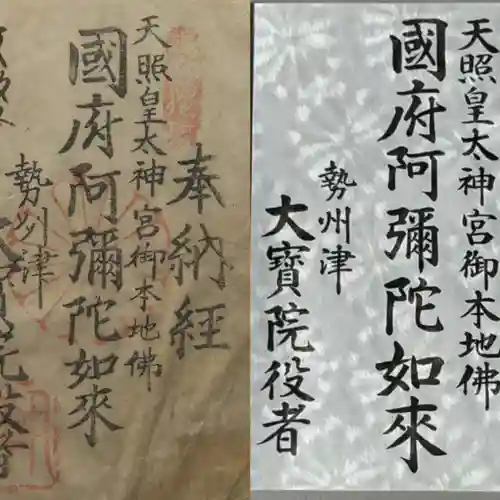 奉納経
天照皇太神宮御本地佛
國府阿彌陀如來
勢州津
大寶院役者
天照皇太神宮御本地佛
國府阿彌陀如來
勢州津
大寶院役者